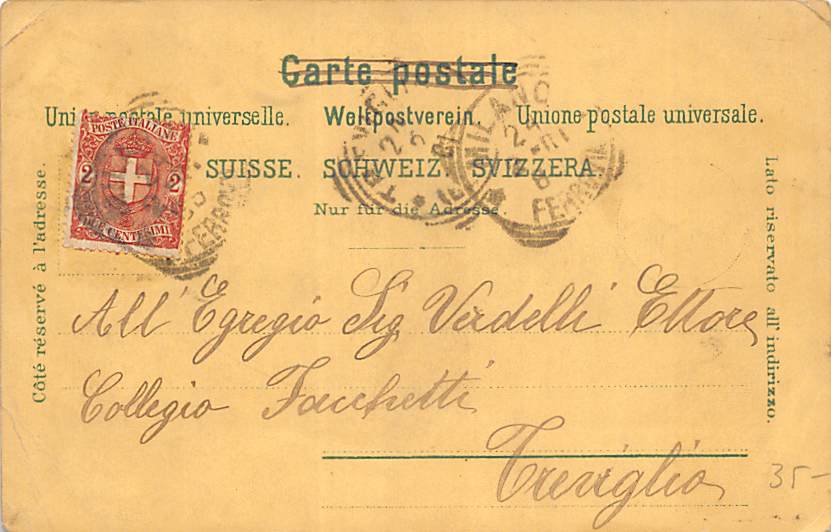 Carte postale
Union postale universelle. Weltpostverein. Unione postale universale.
SUISSE. SCHWEIZ. SVIZZERA.
Nur für die Adresse.
Côté réservé à l'adresse.
Lato riservato all' indirizzo.
POSTE ITALIANE
2 2
DUE CENTESIMI
TREVIGLIO
MILANO
24
FERROVIA
All' Egregio Sig Verdelli Ettore
Collegio Facchetti
Treviglio
35-